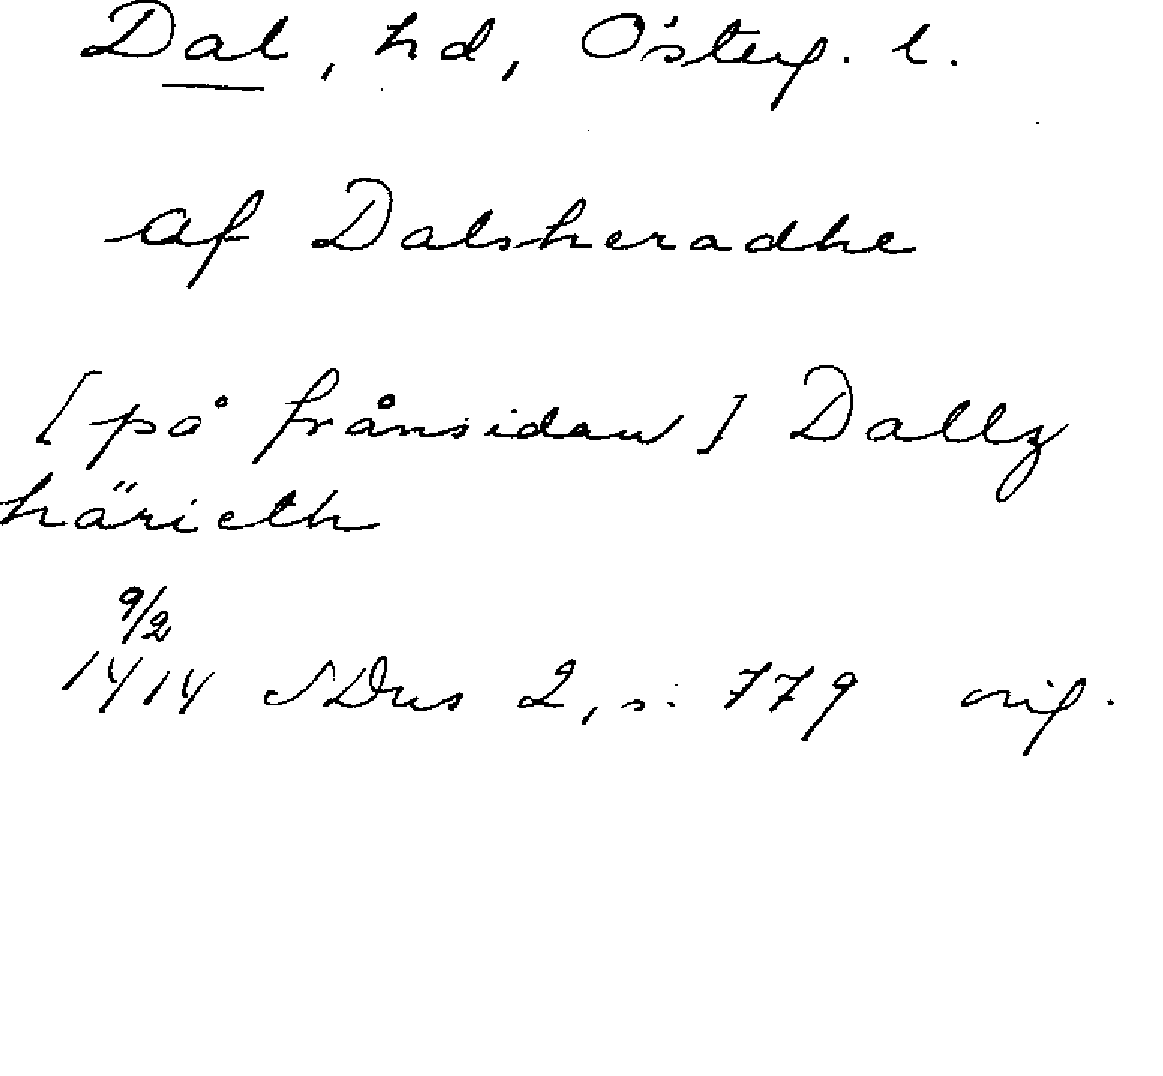 Dal, hd, Österg. l.
af Dalsheradhe
[på frånsidan] Dallz
härieth
9/2
1414 SDns 2, s. 779 orig.